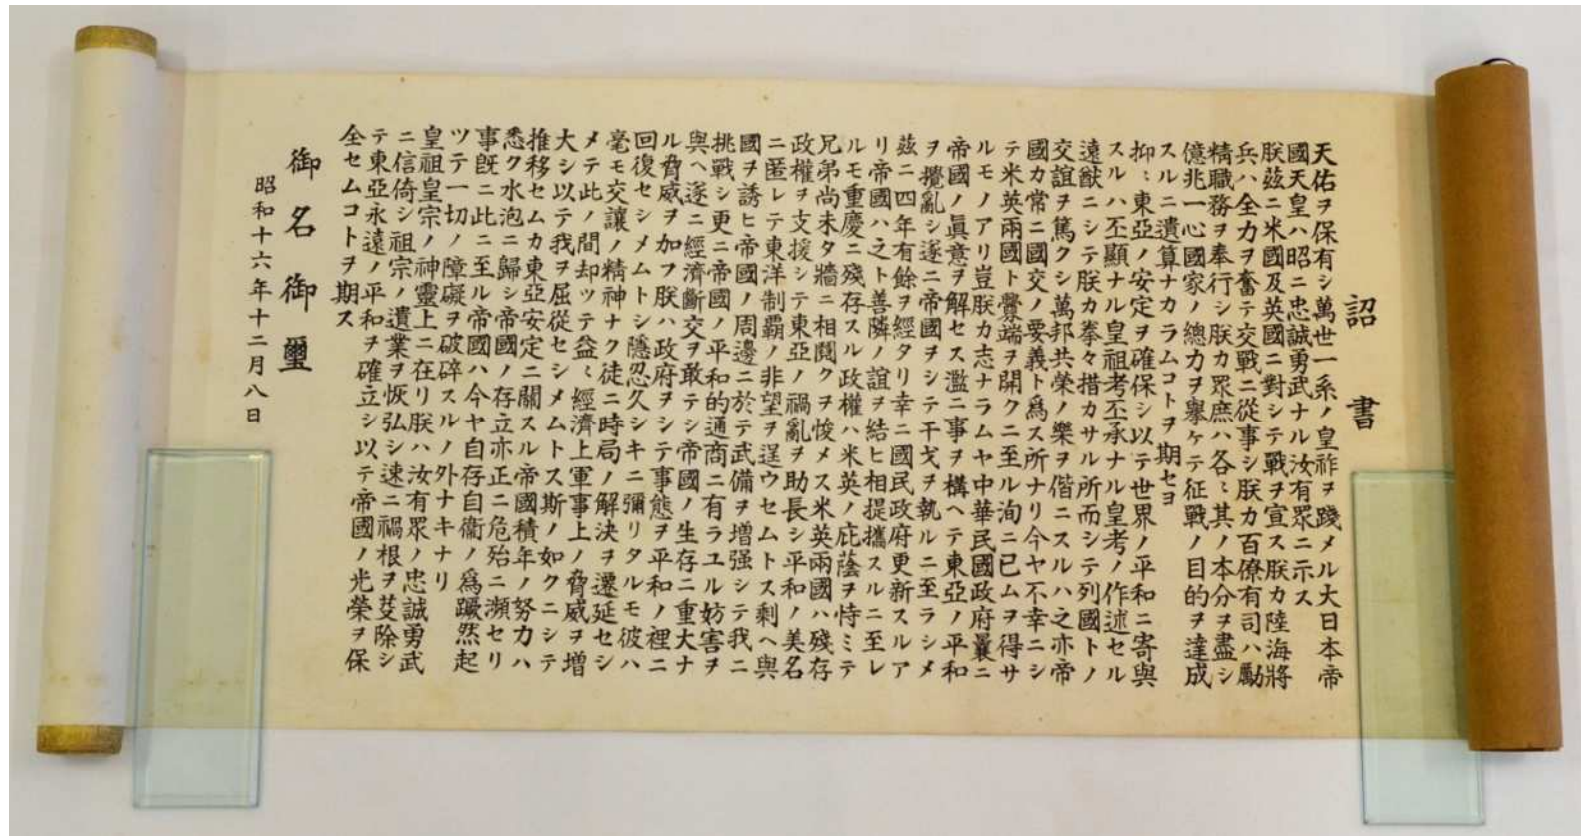 詔書
天佑ヲ保有シ萬世一系ノ皇祚ヲ踐メル大日本帝
國天皇ハ昭ニ忠誠勇武ナル汝有眾ニ示ス
朕茲ニ米國及英國ニ對シテ戰ヲ宣ス朕カ陸海將
兵ハ全力ヲ奮テ交戰ニ從事シ朕カ百僚有司ハ勵
精職務ヲ奉行シ朕カ眾庶ハ各〻其ノ本分ヲ盡シ
億兆一心國家ノ總力ヲ擧ケテ征戰ノ目的ヲ達成
スルニ遺算ナカラムコトヲ期セヨ
抑〻東亞ノ安定ヲ確保シ以テ世界ノ平和ニ寄與
スルハ丕顯ナル皇祖考丕承ナル皇考ノ作述セル
遠猷ニシテ朕カ拳々措カサル所而シテ列國トノ
交誼ヲ篤クシ萬邦共榮ノ樂ヲ偕ニスルハ之亦帝
國カ常ニ國交ノ要義ト爲ス所ナリ今ヤ不幸ニシ
テ米英兩國ト釁端ヲ開クニ至ル洵ニ已ムヲ得サ
ルモノアリ豈朕カ志ナラムヤ中華民國政府曩ニ
帝國ノ眞意ヲ解セス濫ニ事ヲ構ヘテ東亞ノ平和
ヲ攪亂シ遂ニ帝國ヲシテ干戈ヲ執ルニ至ラシメ
茲ニ四年有餘ヲ經タリ幸ニ國民政府更新スルア
リ帝國ハ之ト善隣ノ誼ヲ結ヒ相提攜スルニ至レ
ルモ重慶ニ殘存スル政權ハ米英ノ庇蔭ヲ恃ミテ
兄弟尚未タ牆ニ相鬩クヲ悛メス米英兩國ハ殘存
政權ヲ支援シテ東亞ノ禍亂ヲ助長シ平和ノ美名
ニ匿レテ東洋制覇ノ非望ヲ逞ウセムトス剩ヘ與
國ヲ誘ヒ帝國ノ周邊ニ於テ武備ヲ增强シテ我ニ
挑戰シ更ニ帝國ノ平和的通商ニ有ラユル妨害ヲ
與ヘ遂ニ經濟斷交ヲ敢テシ帝國ノ生存ニ重大ナ
ル脅威ヲ加フ朕ハ政府ヲシテ事態ヲ平和ノ裡ニ
回復セシメムトシ隱忍久シキニ彌リタルモ彼ハ
毫モ交讓ノ精神ナク徒ニ時局ノ解決ヲ遷延セシ
メテ此ノ間却ツテ益〻經濟上軍事上ノ脅威ヲ增
大シ以テ我ヲ屈從セシメムトス斯ノ如クニシテ
推移セムカ東亞安定ニ關スル帝國積年ノ努力ハ
悉ク水泡ニ歸シ帝國ノ存立亦正ニ危殆ニ瀕セリ
事旣ニ此ニ至ル帝國ハ今ヤ自存自衞ノ爲蹶然起
ツテ一切ノ障礙ヲ破碎スルノ外ナキナリ
皇祖皇宗ノ神靈上ニ在リ朕ハ汝有眾ノ忠誠勇武
ニ信倚シ祖宗ノ遺業ヲ恢弘シ速ニ禍根ヲ芟除シ
テ東亞永遠ノ平和ヲ確立シ以テ帝國ノ光榮ヲ保
全セムコトヲ期ス
御名御璽
昭和十六年十二月八日